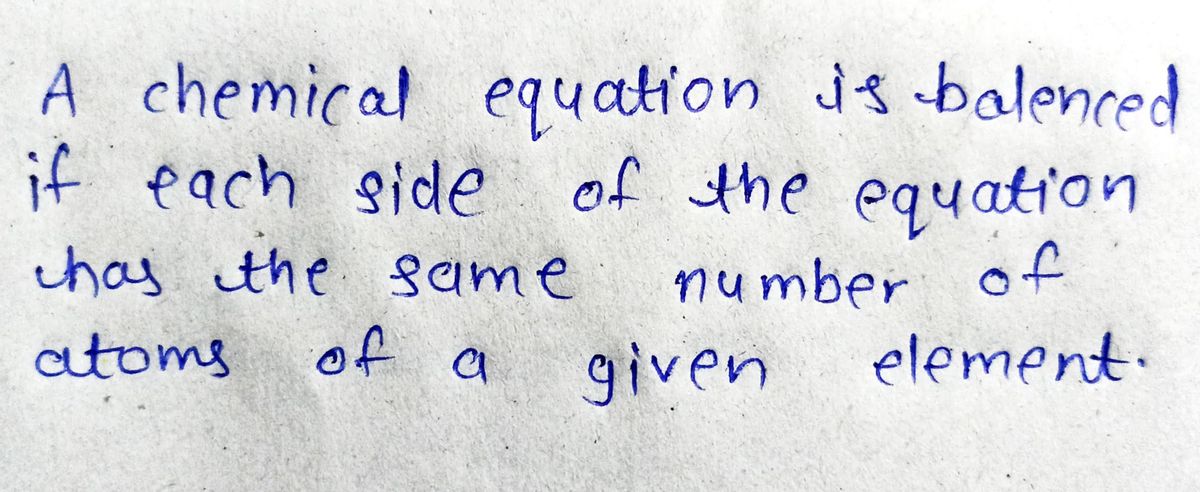 A chemical equation is balenced
if each side of the equation
has the same number of
atoms of a given element.